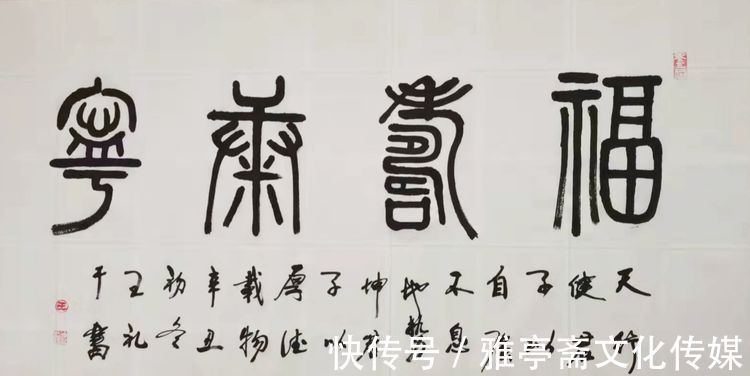 福壽康寧
天行
健君
子以
自强
不息
地勢
坤君
子以
厚德
載物
辛丑
初冬
王礼
千書
快传号 / 雅亭斋文化传媒